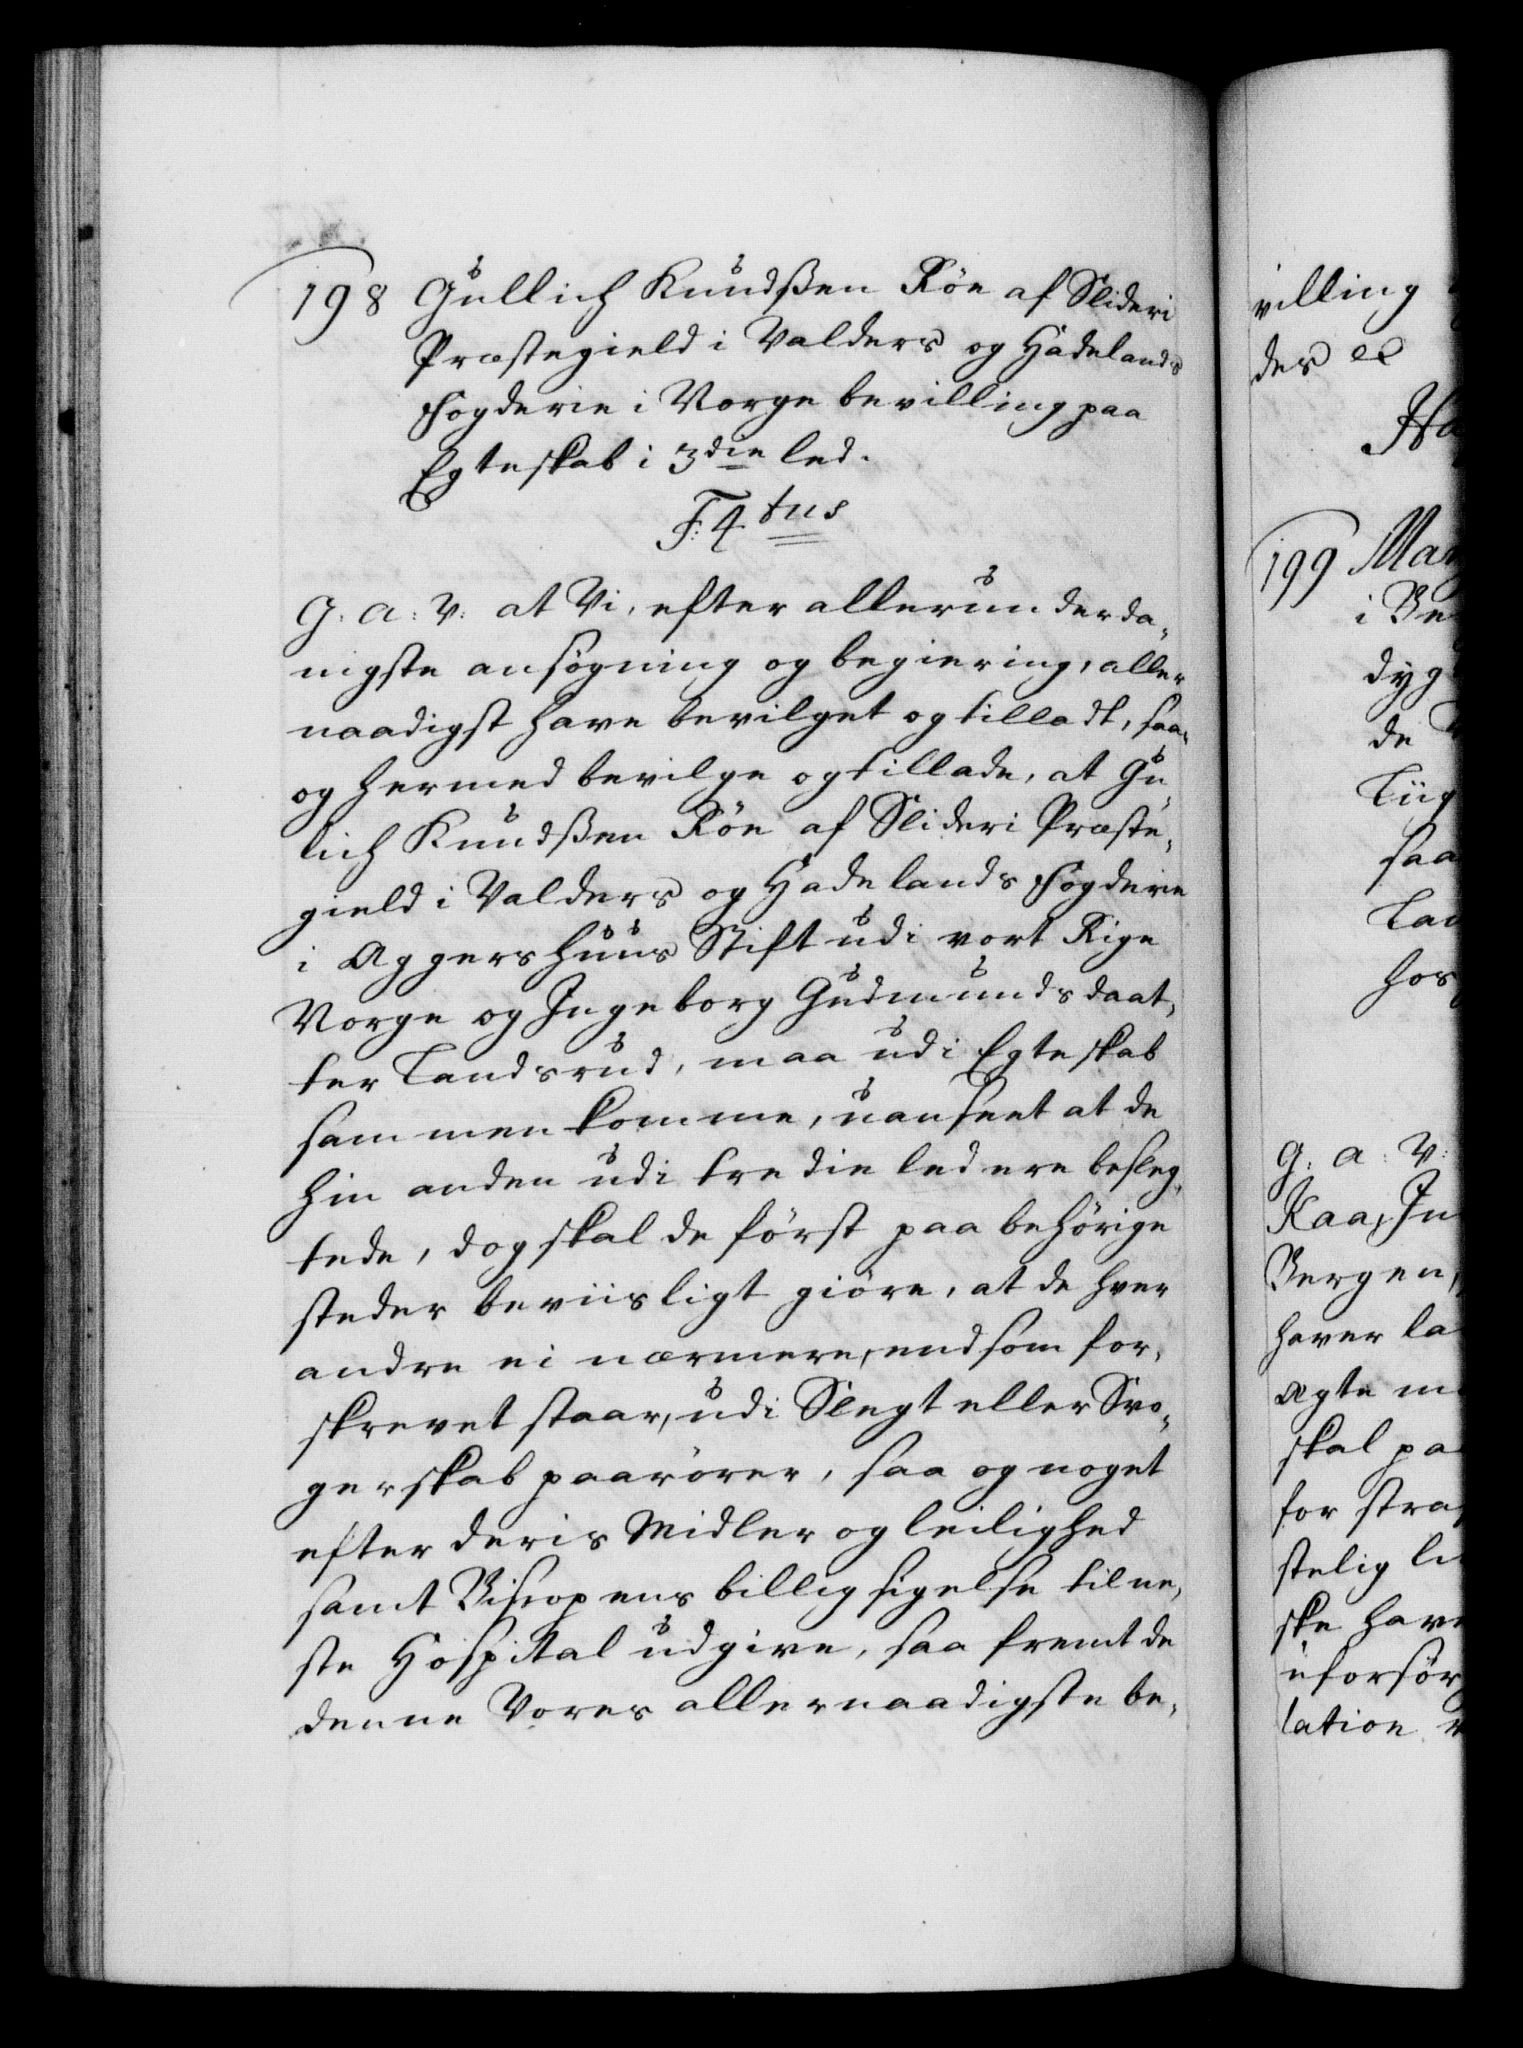 198 Gullich Knudsßen Röe af Slideri
Præstegield i Valders og Hadelands
Fogderie i Norge bevilling paa
Egteskab i 3die led.
F: 4tus
G: A: V: at Vi, efter allerunderda-
nigste ansögning og begiering, aller
naadigst have bevilget og tilladt, saa-
og hermed bevilge og tillade, at Gu-
lich Knudsßen Röe af Slideri Præste-
gield i Valders og Hadelands Fogderie
i Aggershuus Stift udi vort Rige
Norge og Ingeborg Gudmundsdaat-
ter Landsrud, maa udi Egteskab
sammenkomme, uanseet at de
hin anden udi tredie led ere besleg-
tede, dog skal de först paa behörige
steder beviisligt giöre, at de hver
andre ei nærmere, end som for-
skrevet staar, udi Slegt eller Svo-
gerskab paarörer, saa og noget
efter deris Midler og leilighed
samt Biscopens billig sigelse til ne-
ste Hospital udgive, saa fremt de
denne Vores allernaadigste be-
villing
des &c
199
i Be
dyg
de
Liig
saa
Lan
hos
G: A: V:
Kaas, Jn
Bergen,
haver la
Ægte m
skal pa
for stra
stelig li
ske hav
uforsör
lation